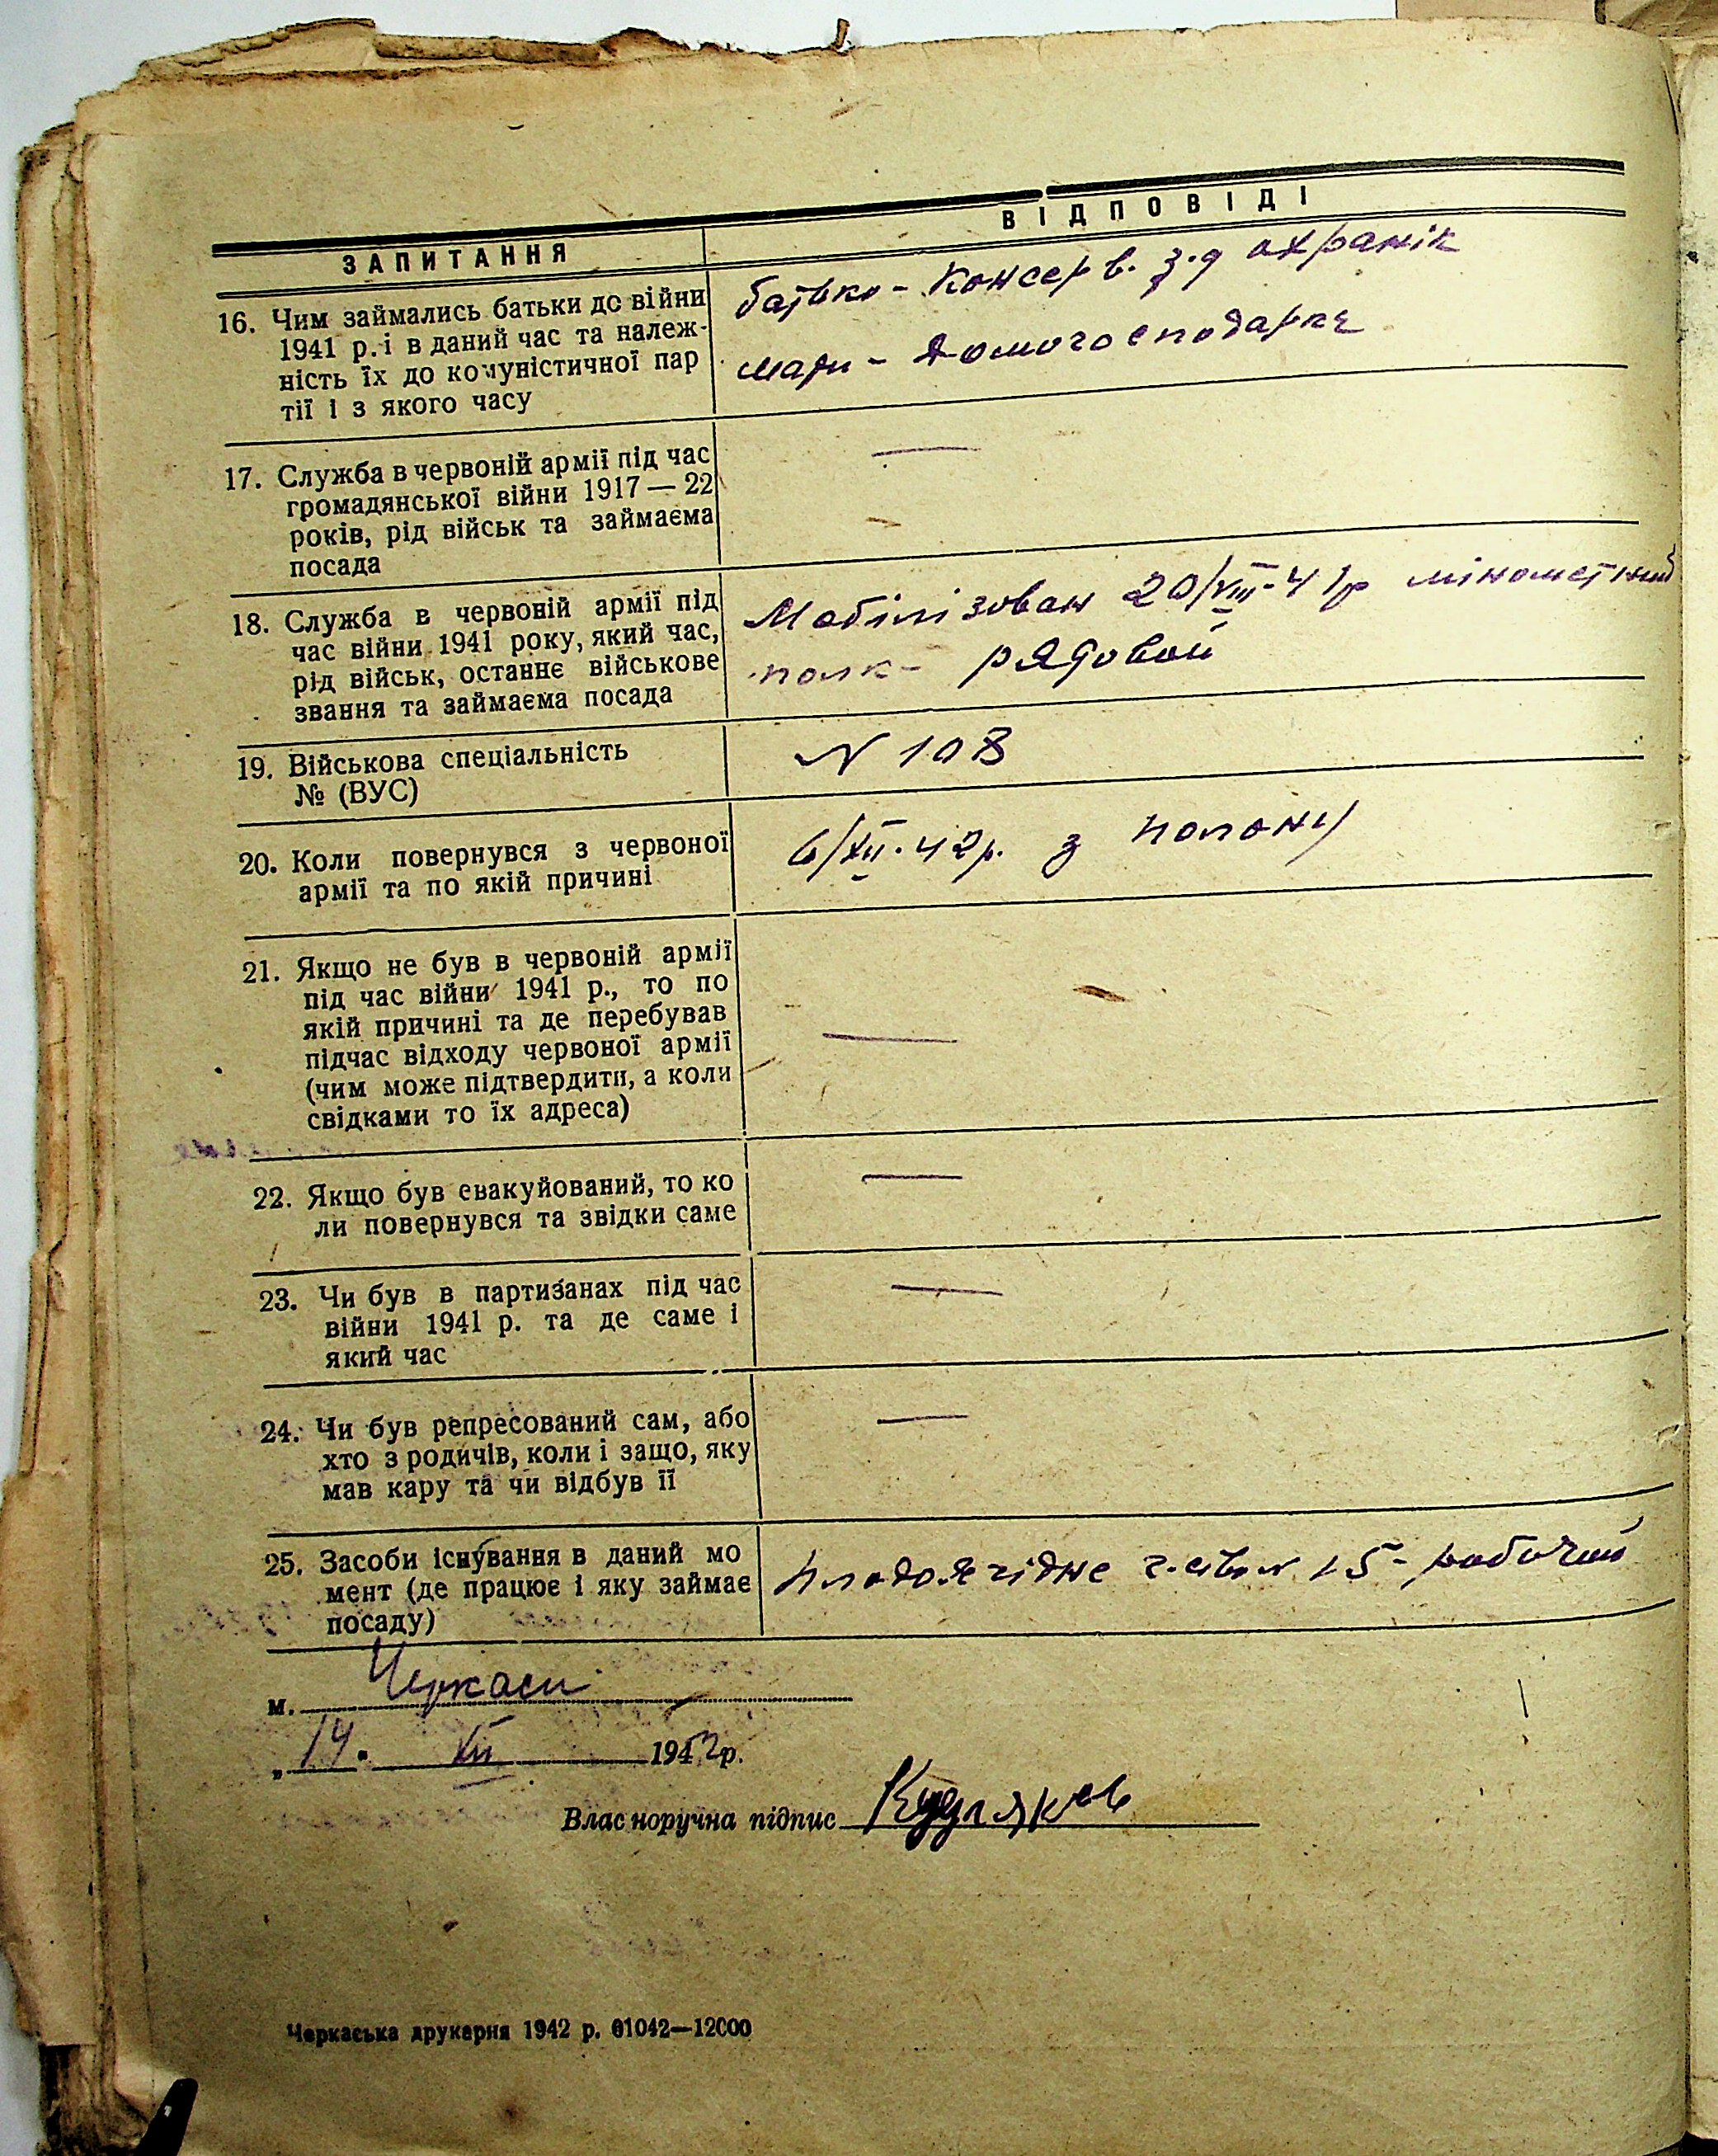 ЗАПИТАННЯ
ВІДПОВІДІ
16. Чим займались батьки до війни
1941 р. і в даний час та належ-
ність їх до комуністичної пар
тії і з якого часу
батько - Консерв. з-д охранік
мати - домогосподарка
17. Служба в червоній армії під час
громадянської війни 1917 — 22
років, рід військ та займаєма
посада
—
18. Служба в червоній армії під
час війни 1941 року, який час,
рід військ, останнє військове
звання та займаєма посада
Мобілізован 20/VIII-41р мінометний
полк - рядовой
19. Військова спеціальність
№ (ВУС)
N 108
20. Коли повернувся з червоної
армії та по якій причині
6/XII.42р. з полону
21. Якщо не був в червоній армії
під час війни 1941 р., то по
якій причині та де перебував
підчас відходу червоної армії
(чим може підтвердити, а коли
свідками то їх адреса)
—
22. Якщо був евакуйований, то ко
ли повернувся та звідки саме
—
23. Чи був в партизанах під час
війни 1941 р. та де саме і
який час
—
24. Чи був репресований сам, або
хто з родичів, коли і защо, яку
мав кару та чи відбув її
—
25. Засоби існування в даний мо
мент (де працює і яку займає
посаду)
плодоягідне г-ство N 15 - рабочий
м. Черкаси
„14. XII 1942р.
Власноручна підпис Кудляков
Черкаська друкарня 1942 р. 01042—12000